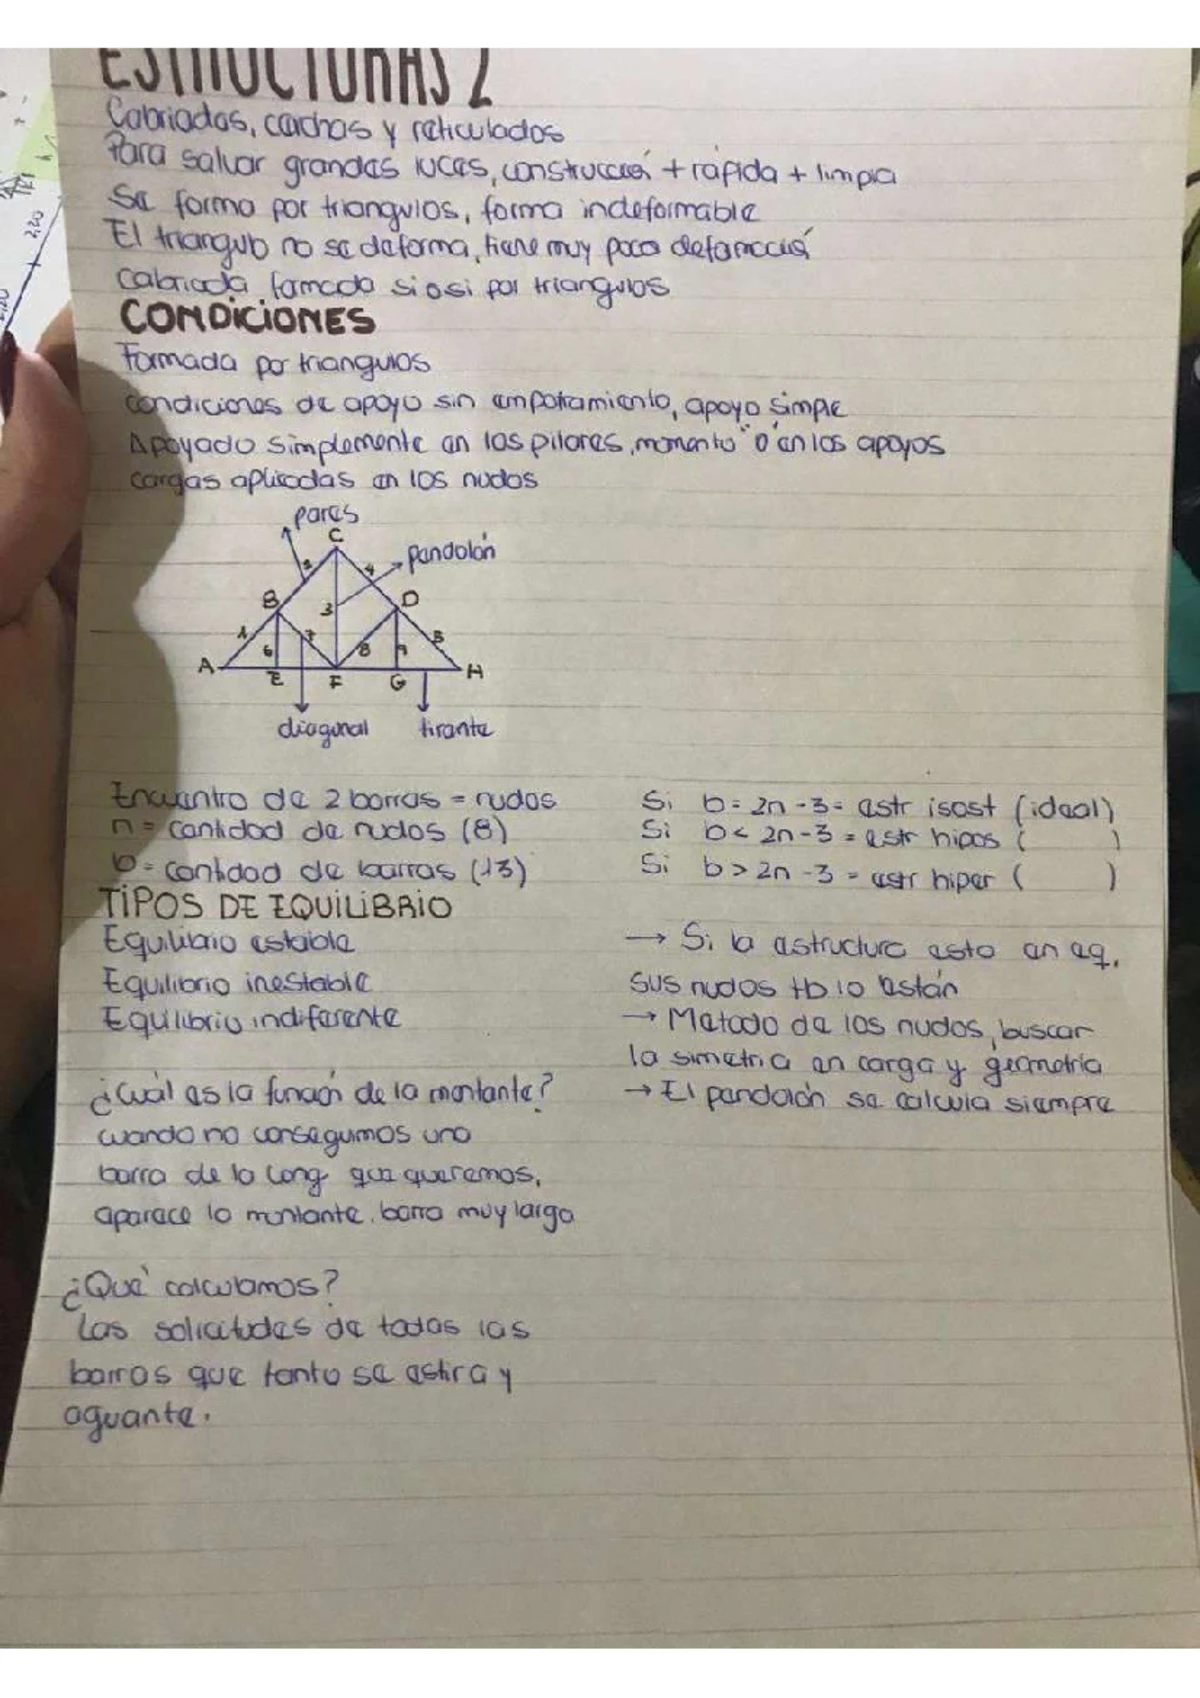 ESTRUCTURAS 2
Cabriadas, cerchas y reticulados
Para salvar grandes luces, construcció + rápida + limpia
Se forma por triangulos, forma indeformable
El triangulo no se deforma, tiene muy poca deformació
cabriada formada si o si por triangulos
CONDICIONES
Formada por triangulos
condiciones de apoyo sin empotramiento, apoyo simple
Apoyado simplemente en los pilares, momento "0" en los apoyos
cargas aplicadas en los nudos
pares
C
pendolón
2
4
B
3
D
1
6
7
8
9
5
A
E
F
G
H
diagonal
tirante
Encuentro de 2 barras = nudos
n = cantidad de nudos (8)
b = cantidad de barras (13)
Si b = 2n - 3 = estr isost (ideal)
Si b < 2n - 3 = estr hipos ( )
Si b > 2n - 3 = estr hiper ( )
TIPOS DE EQUILIBRIO
Equilibrio estable
Equilibrio inestable
Equilibrio indiferente
→ Si la estructura esta en eq,
sus nudos tb lo están
→ Metodo de los nudos, buscar
la simetria en carga y geometria
→ El pendolón se calcula siempre
¿Cuál es la función de la montante?
cuando no conseguimos una
barra de la long que queremos,
aparece la montante. barra muy larga
¿Qué calculamos?
Las solicitudes de todas las
barras que tanto se estira y
aguante.
2,20